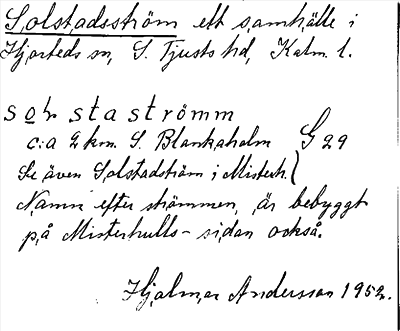 Solstadsström ett samhälle i
Hjorteds sn, S. Tjusts hd, Kalm. l.
soɫ staströmm
c:a 2 km. S. Blankaholm G 29
Se även Solstadström i Misterh.)
Namn efter strömmen, är bebyggt
på Misterhults-sidan också.
Hjalmar Andersson 1952.